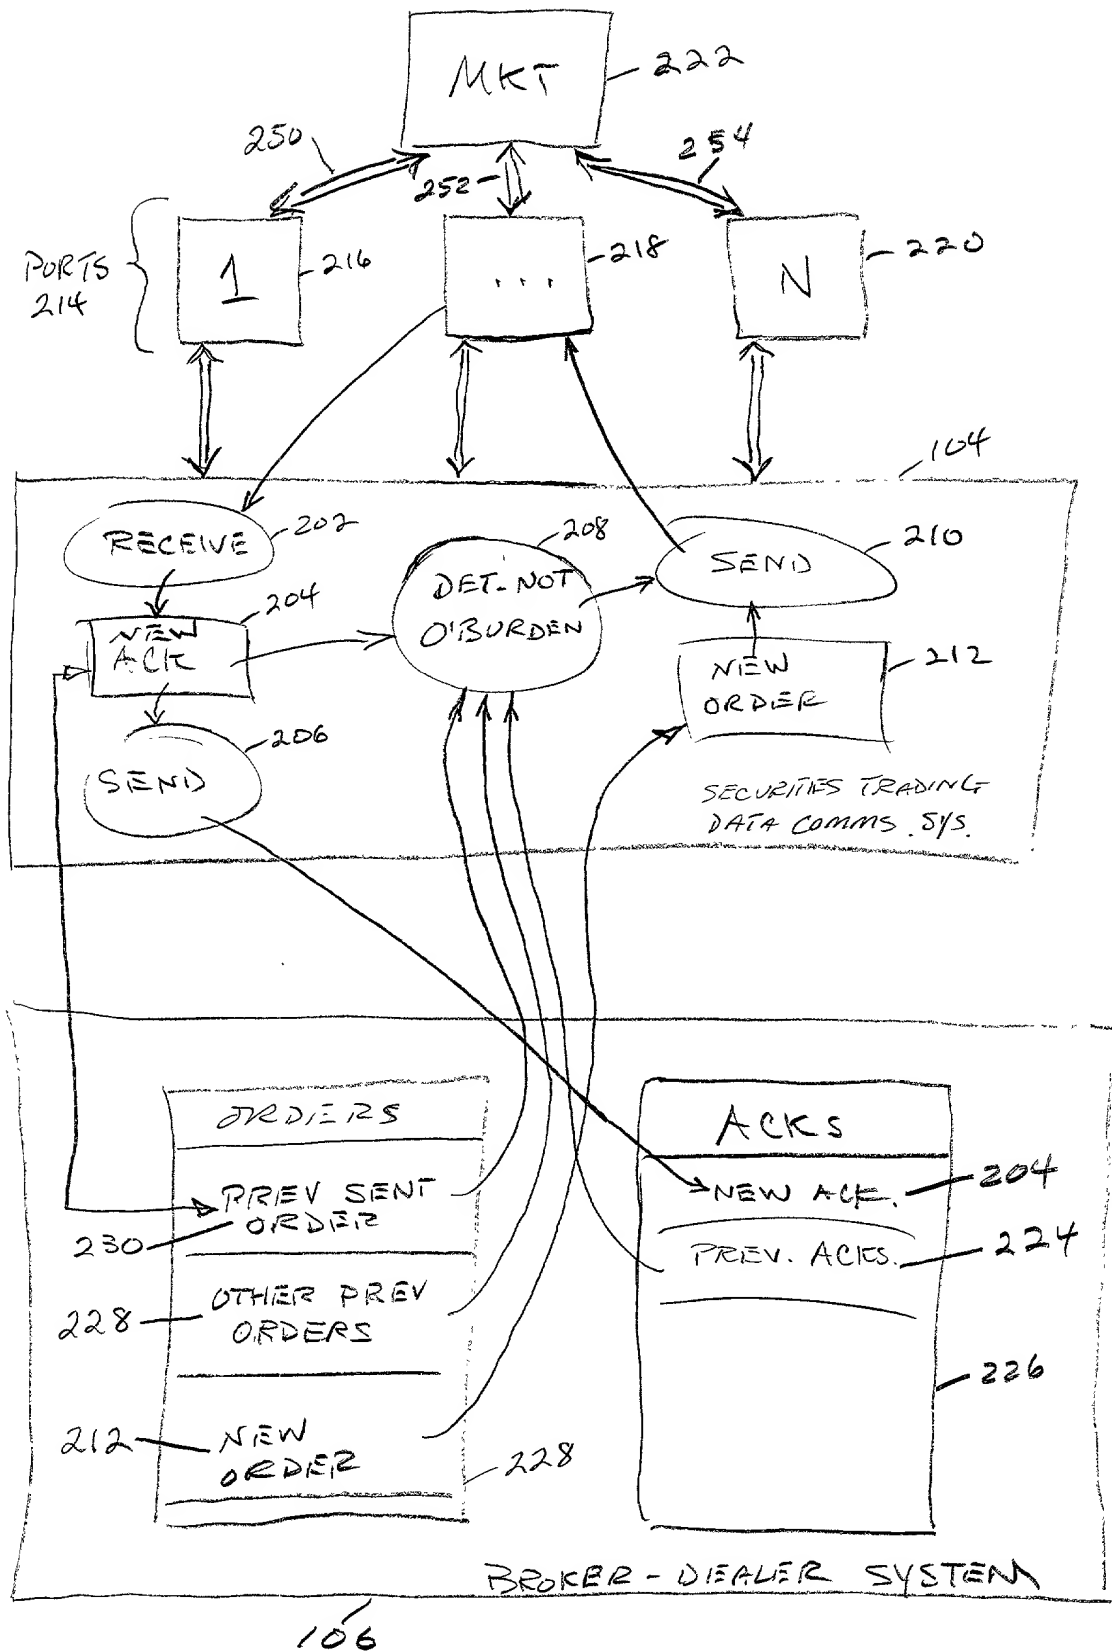 MKT
222
250
252
254
PORTS
214
1
216
...
218
N
220
104
RECEIVE
202
208
DET-NOT
O'BURDEN
SEND
210
NEW
ACK
204
NEW
ORDER
212
SEND
206
SECURITIES TRADING
DATA COMMS. SYS.
ORDERS
PREV SENT
ORDER
230
OTHER PREV
ORDERS
228
NEW
ORDER
212
228
ACKS
NEW ACK.
204
PREV. ACKS.
224
226
BROKER-DEALER SYSTEM
106